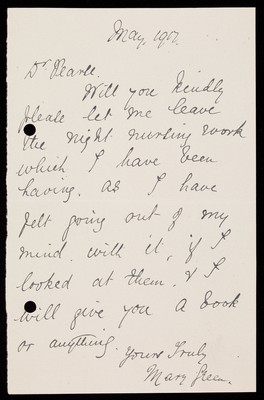 May, 1907.
Dr Pearce.
Will you kindly
please let me leave
the night nursing work
which I have been
having. as I have
felt going out of my
mind with it, if I
looked at them. & I
will give you a book
or anything.
Yours Truly
Mary Green.